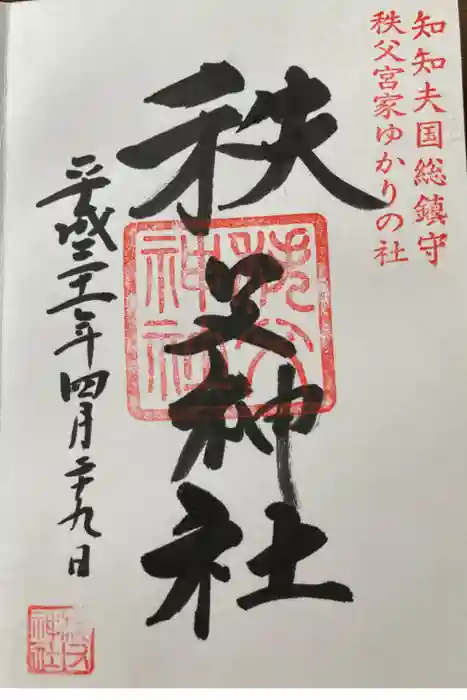 知知夫国総鎮守
秩父宮家ゆかりの社
秩父神社
秩父神社
平成三十一年四月二十九日
秩父神社